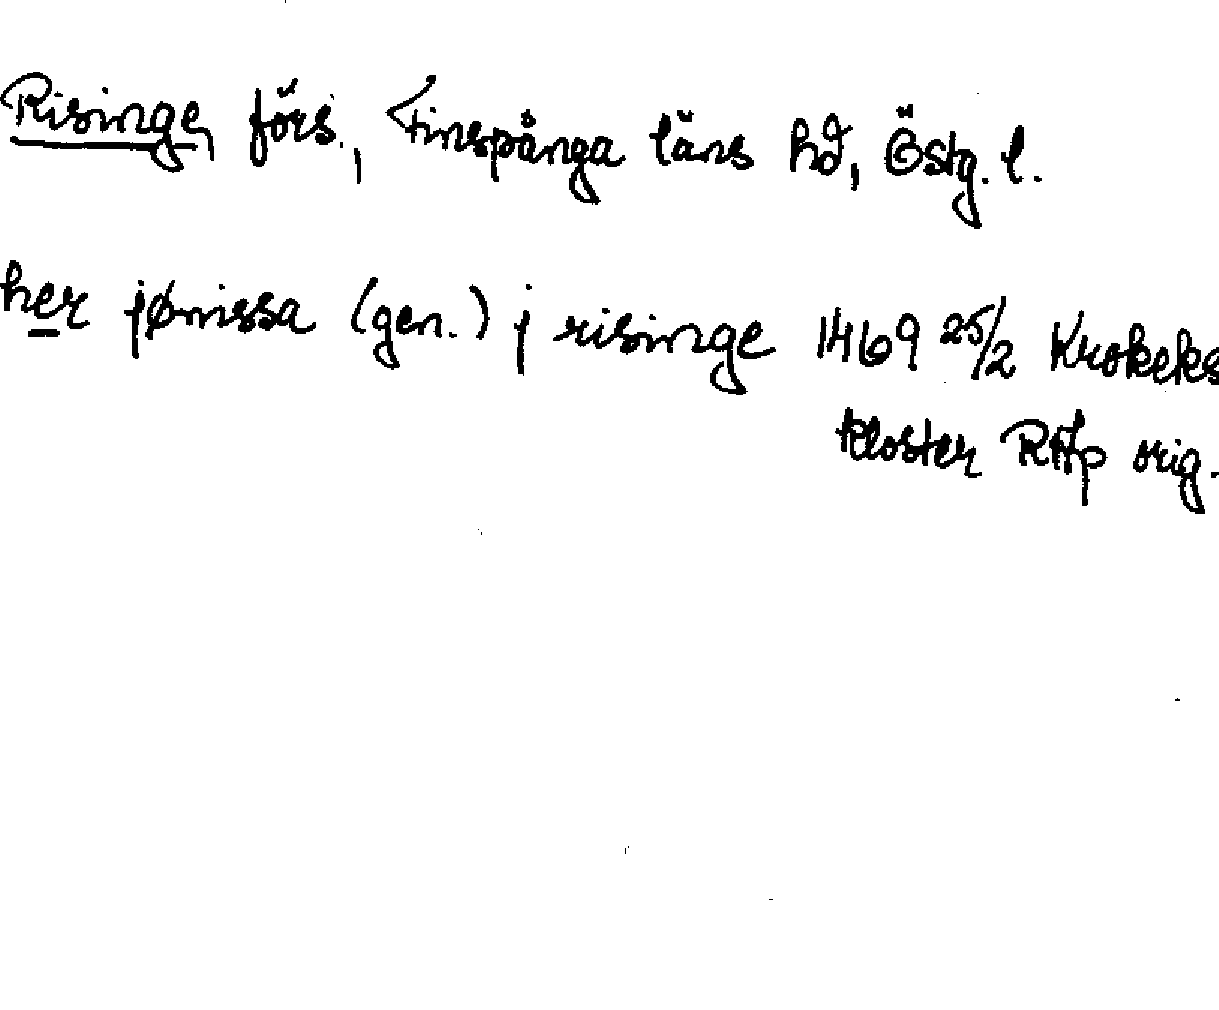 Risinge, förs., Finspånga läns hd, Östg. l.
her jønissa (gen.) j risinge 1469 25/2 Krokeks
kloster RAp orig.